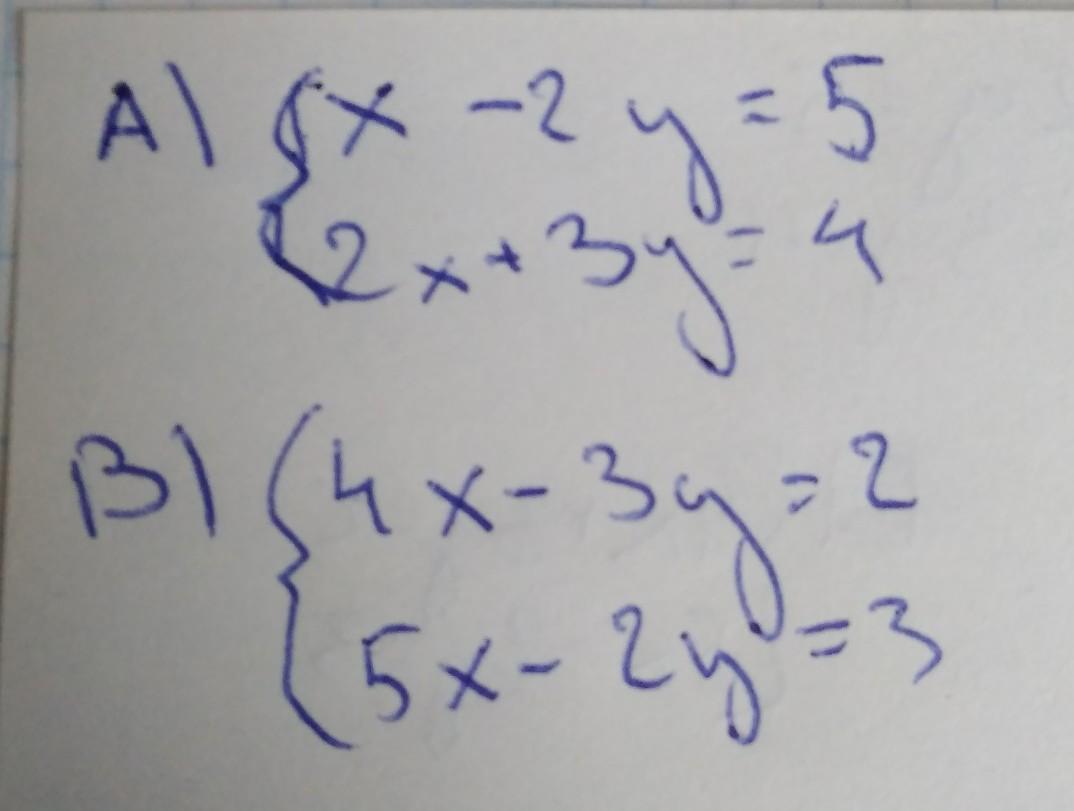 A) { x - 2y = 5
2x + 3y = 4
B) { 4x - 3y = 2
5x - 2y = 3